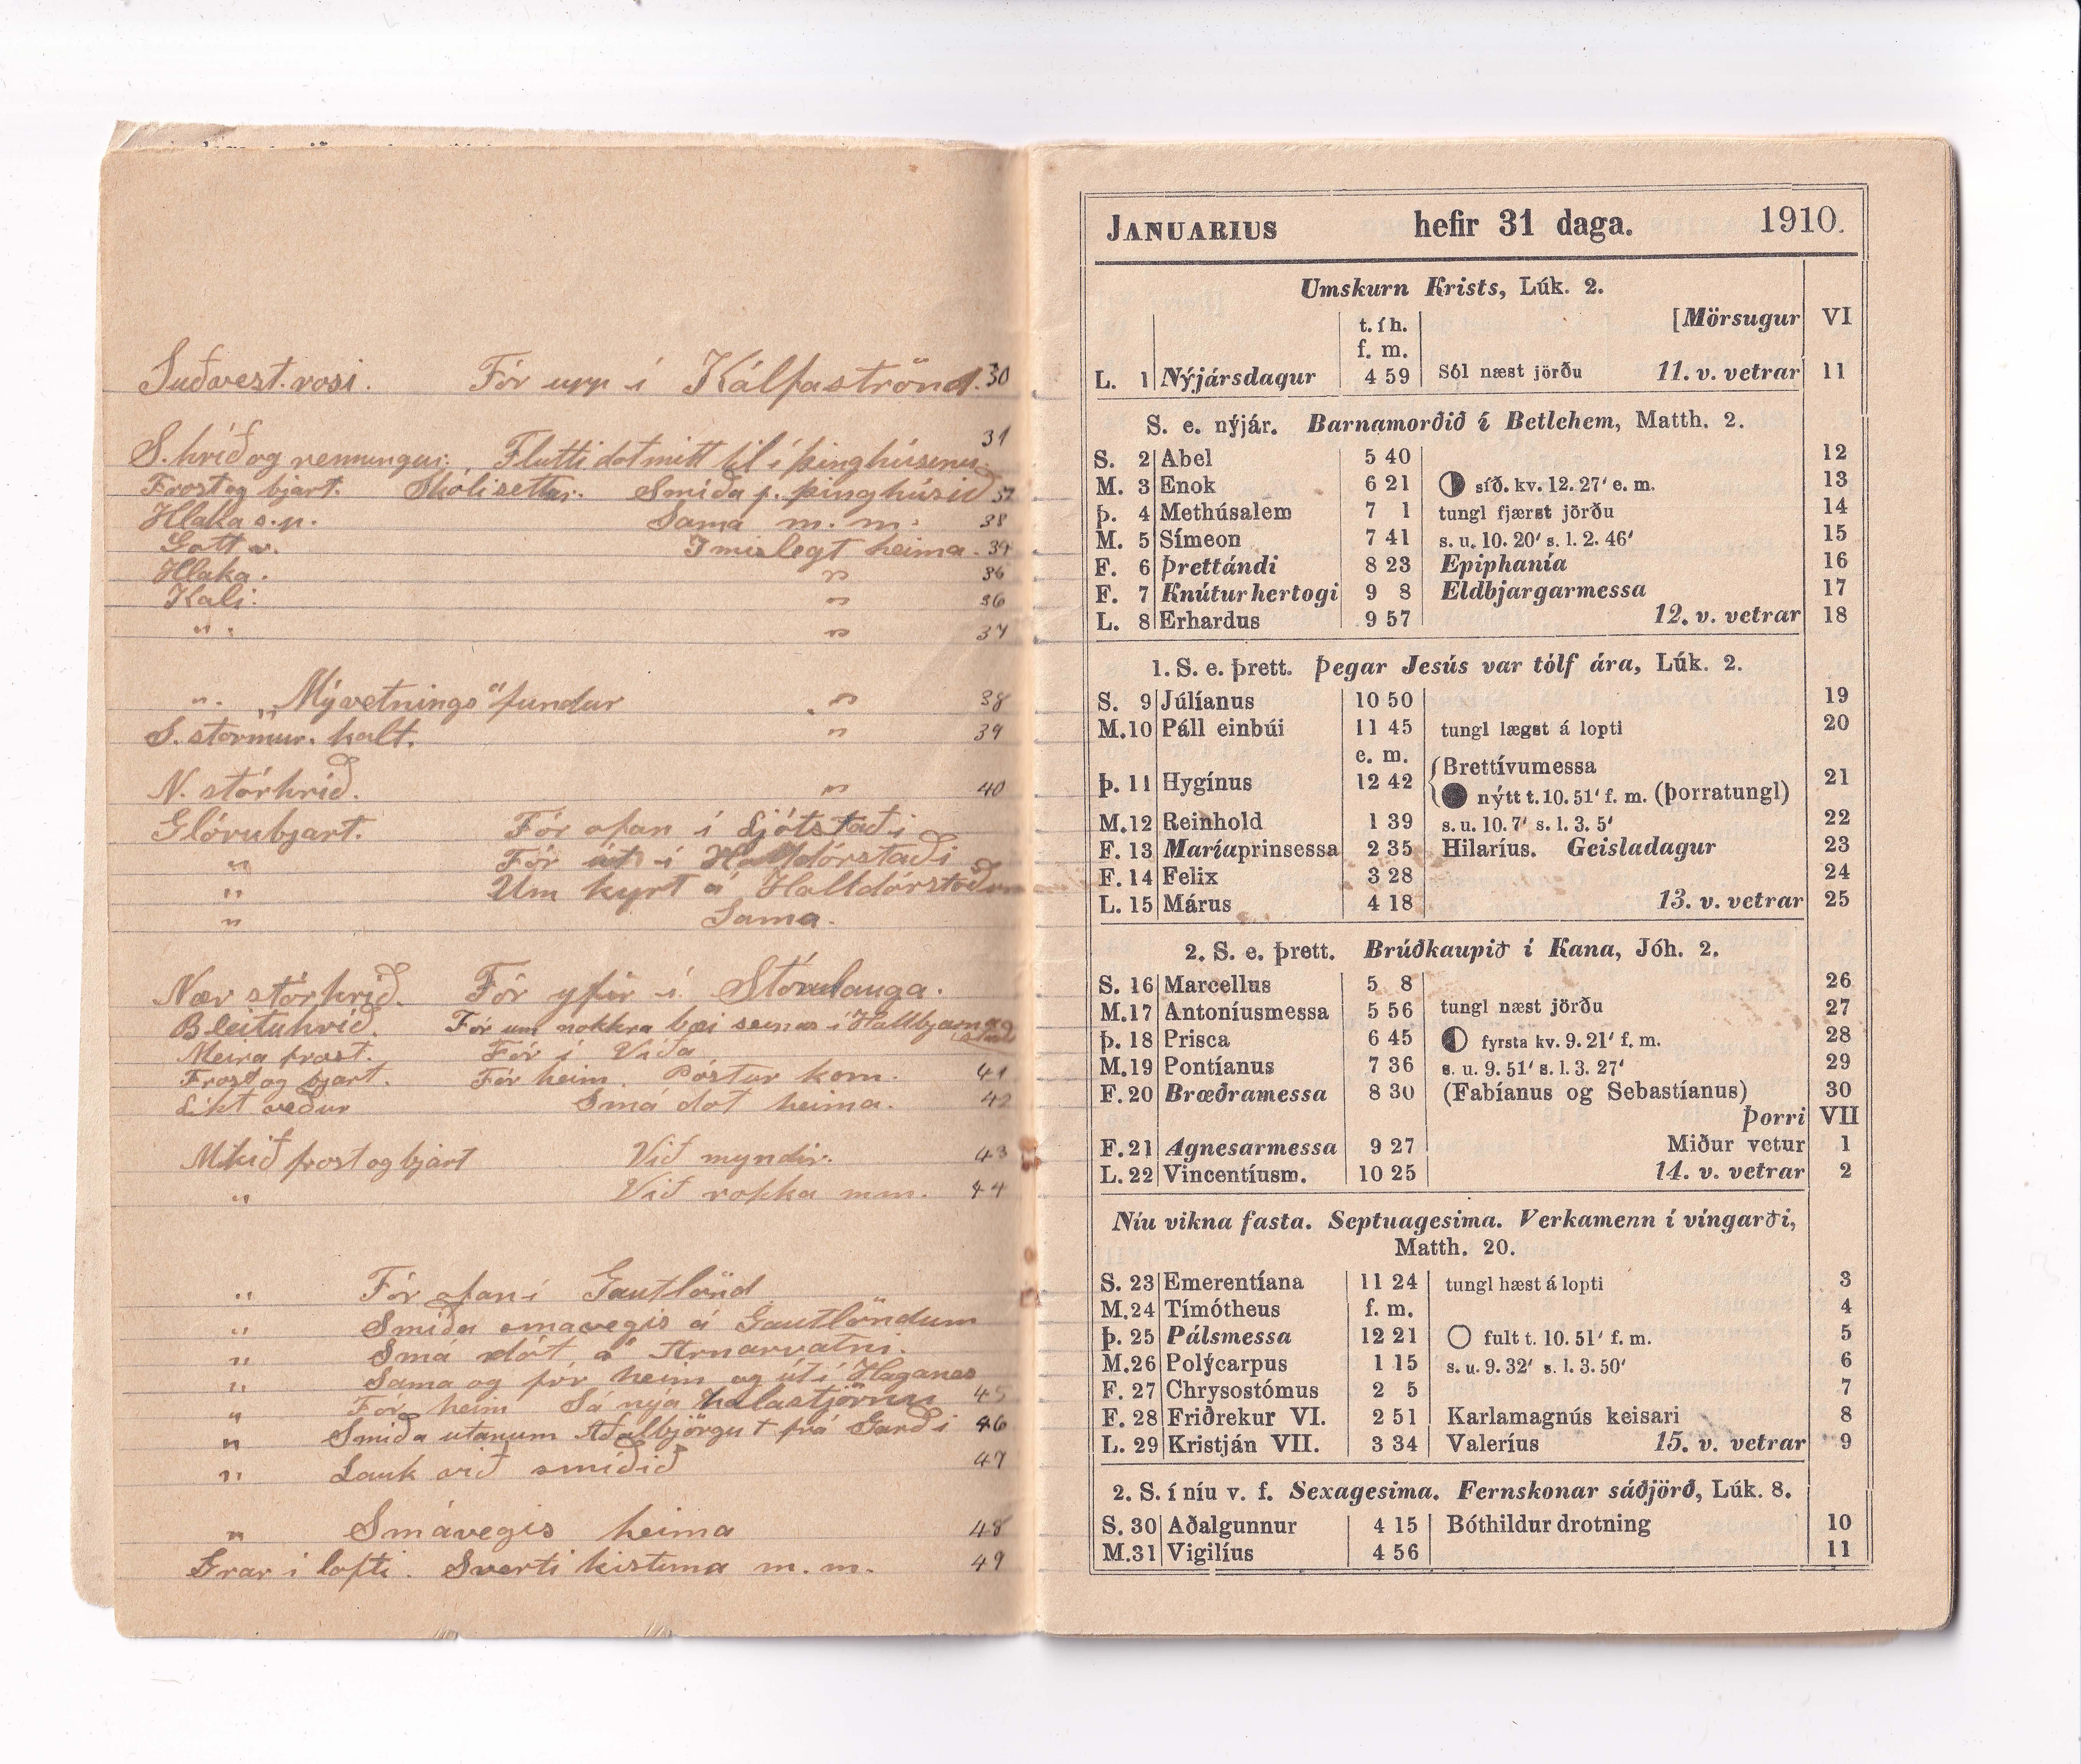 Suðvest. rosi. Fór upp í Kálfaströnd. 30
31
S. hríð og renningur. Flutti dot mitt til í þinghúsinu
Frost og bjart. Skólisettur. Smíða f. þinghúsið 32
Hlaka s.p. Sama m. m. 33
Gott v. Imislegt heima. 34
Hlaka. " 35
Kali. " 36
" . " 37
" . „Mývetnings" fundur " 38
S. stormur. kalt. " 39
N. stórhríð. " 40
Glórubjart. Fór ofan í Ljótstaði
" Fór út í Halldórstaði
" Um kyrt á Halldórstöðum
" Sama.
Nær stórhríð. Fór yfir í Stórulauga.
Bleituhríð. Fór um nokkra bæi seinas í Hallbjarna
stað
Meira frost. Fór í Víða
Frost og bjart. Fór heim. Póstur kom. 41
Líkt veður Smá dot heima. 42
Mikið frost og bjart Við myndir. 43
" Við rokka mm. 44
" Fór ofaní Gautlönd
" Smíða smavegis á Gautlöndum
" Smá dót á Arnarvatni.
" Sama og fór heim og út í Haganes
" Fór heim Sá nýa halastjörnu 45
" Smíða utanum Aðalbjörgu t frá Garði 46
" Lauk við smíðið 47
" Smávegis heima 48
Grar í lofti. Sverti kistuna m. m. 49
JANUARIUS hefir 31 daga. 1910.
Umskurn Krists, Lúk. 2.
[Mörsugur VI
t. í h.
f. m.
L. 1 Nýjársdagur 4 59 Sól næst jörðu 11. v. vetrar 11
S. e. nýjár. Barnamorðið í Betlehem, Matth. 2.
S. 2 Abel 5 40 12
M. 3 Enok 6 21 síð. kv. 12. 27′ e. m. 13
Þ. 4 Methúsalem 7 1 tungl fjærst jörðu 14
M. 5 Símeon 7 41 s. u. 10. 20′ s. l. 2. 46′ 15
F. 6 Þrettándi 8 23 Epiphanía 16
F. 7 Knútur hertogi 9 8 Eldbjargarmessa 17
L. 8 Erhardus 9 57 12. v. vetrar 18
1. S. e. þrett. Þegar Jesús var tólf ára, Lúk. 2.
S. 9 Júlíanus 10 50 19
M. 10 Páll einbúi 11 45 tungl lægst á lopti 20
e. m. Brettívumessa
Þ. 11 Hygínus 12 42 21
nýtt t. 10. 51′ f. m. (þorratungl)
M. 12 Reinhold 1 39 s. u. 10. 7′ s. l. 3. 5′ 22
F. 13 Maríaprinsessa 2 35 Hilaríus. Geisladagur 23
F. 14 Felix 3 28 24
L. 15 Márus 4 18 13. v. vetrar 25
2. S. e. þrett. Brúðkaupið í Kana, Jóh. 2.
S. 16 Marcellus 5 8 26
M. 17 Antoníusmessa 5 56 tungl næst jörðu 27
Þ. 18 Prisca 6 45 fyrsta kv. 9. 21′ f. m. 28
M. 19 Pontíanus 7 36 s. u. 9. 51′ s. l. 3. 27′ 29
F. 20 Bræðramessa 8 30 (Fabíanus og Sebastíanus) 30
Þorri VII
F. 21 Agnesarmessa 9 27 Miður vetur 1
L. 22 Vincentíusm. 10 25 14. v. vetrar 2
Níu vikna fasta. Septuagesima. Verkamenn í víngarði,
Matth. 20.
S. 23 Emerentíana 11 24 tungl hæst á lopti 3
M. 24 Tímótheus f. m. 4
Þ. 25 Pálsmessa 12 21 fult t. 10. 51′ f. m. 5
M. 26 Polýcarpus 1 15 s. u. 9. 32′ s. l. 3. 50′ 6
F. 27 Chrysostómus 2 5 7
F. 28 Friðrekur VI. 2 51 Karlamagnús keisari 8
L. 29 Kristján VII. 3 34 Valeríus 15. v. vetrar 9
2. S. í níu v. f. Sexagesima. Fernskonar sáðjörð, Lúk. 8.
S. 30 Aðalgunnur 4 15 Bóthildur drotning 10
M. 31 Vigilíus 4 56 11